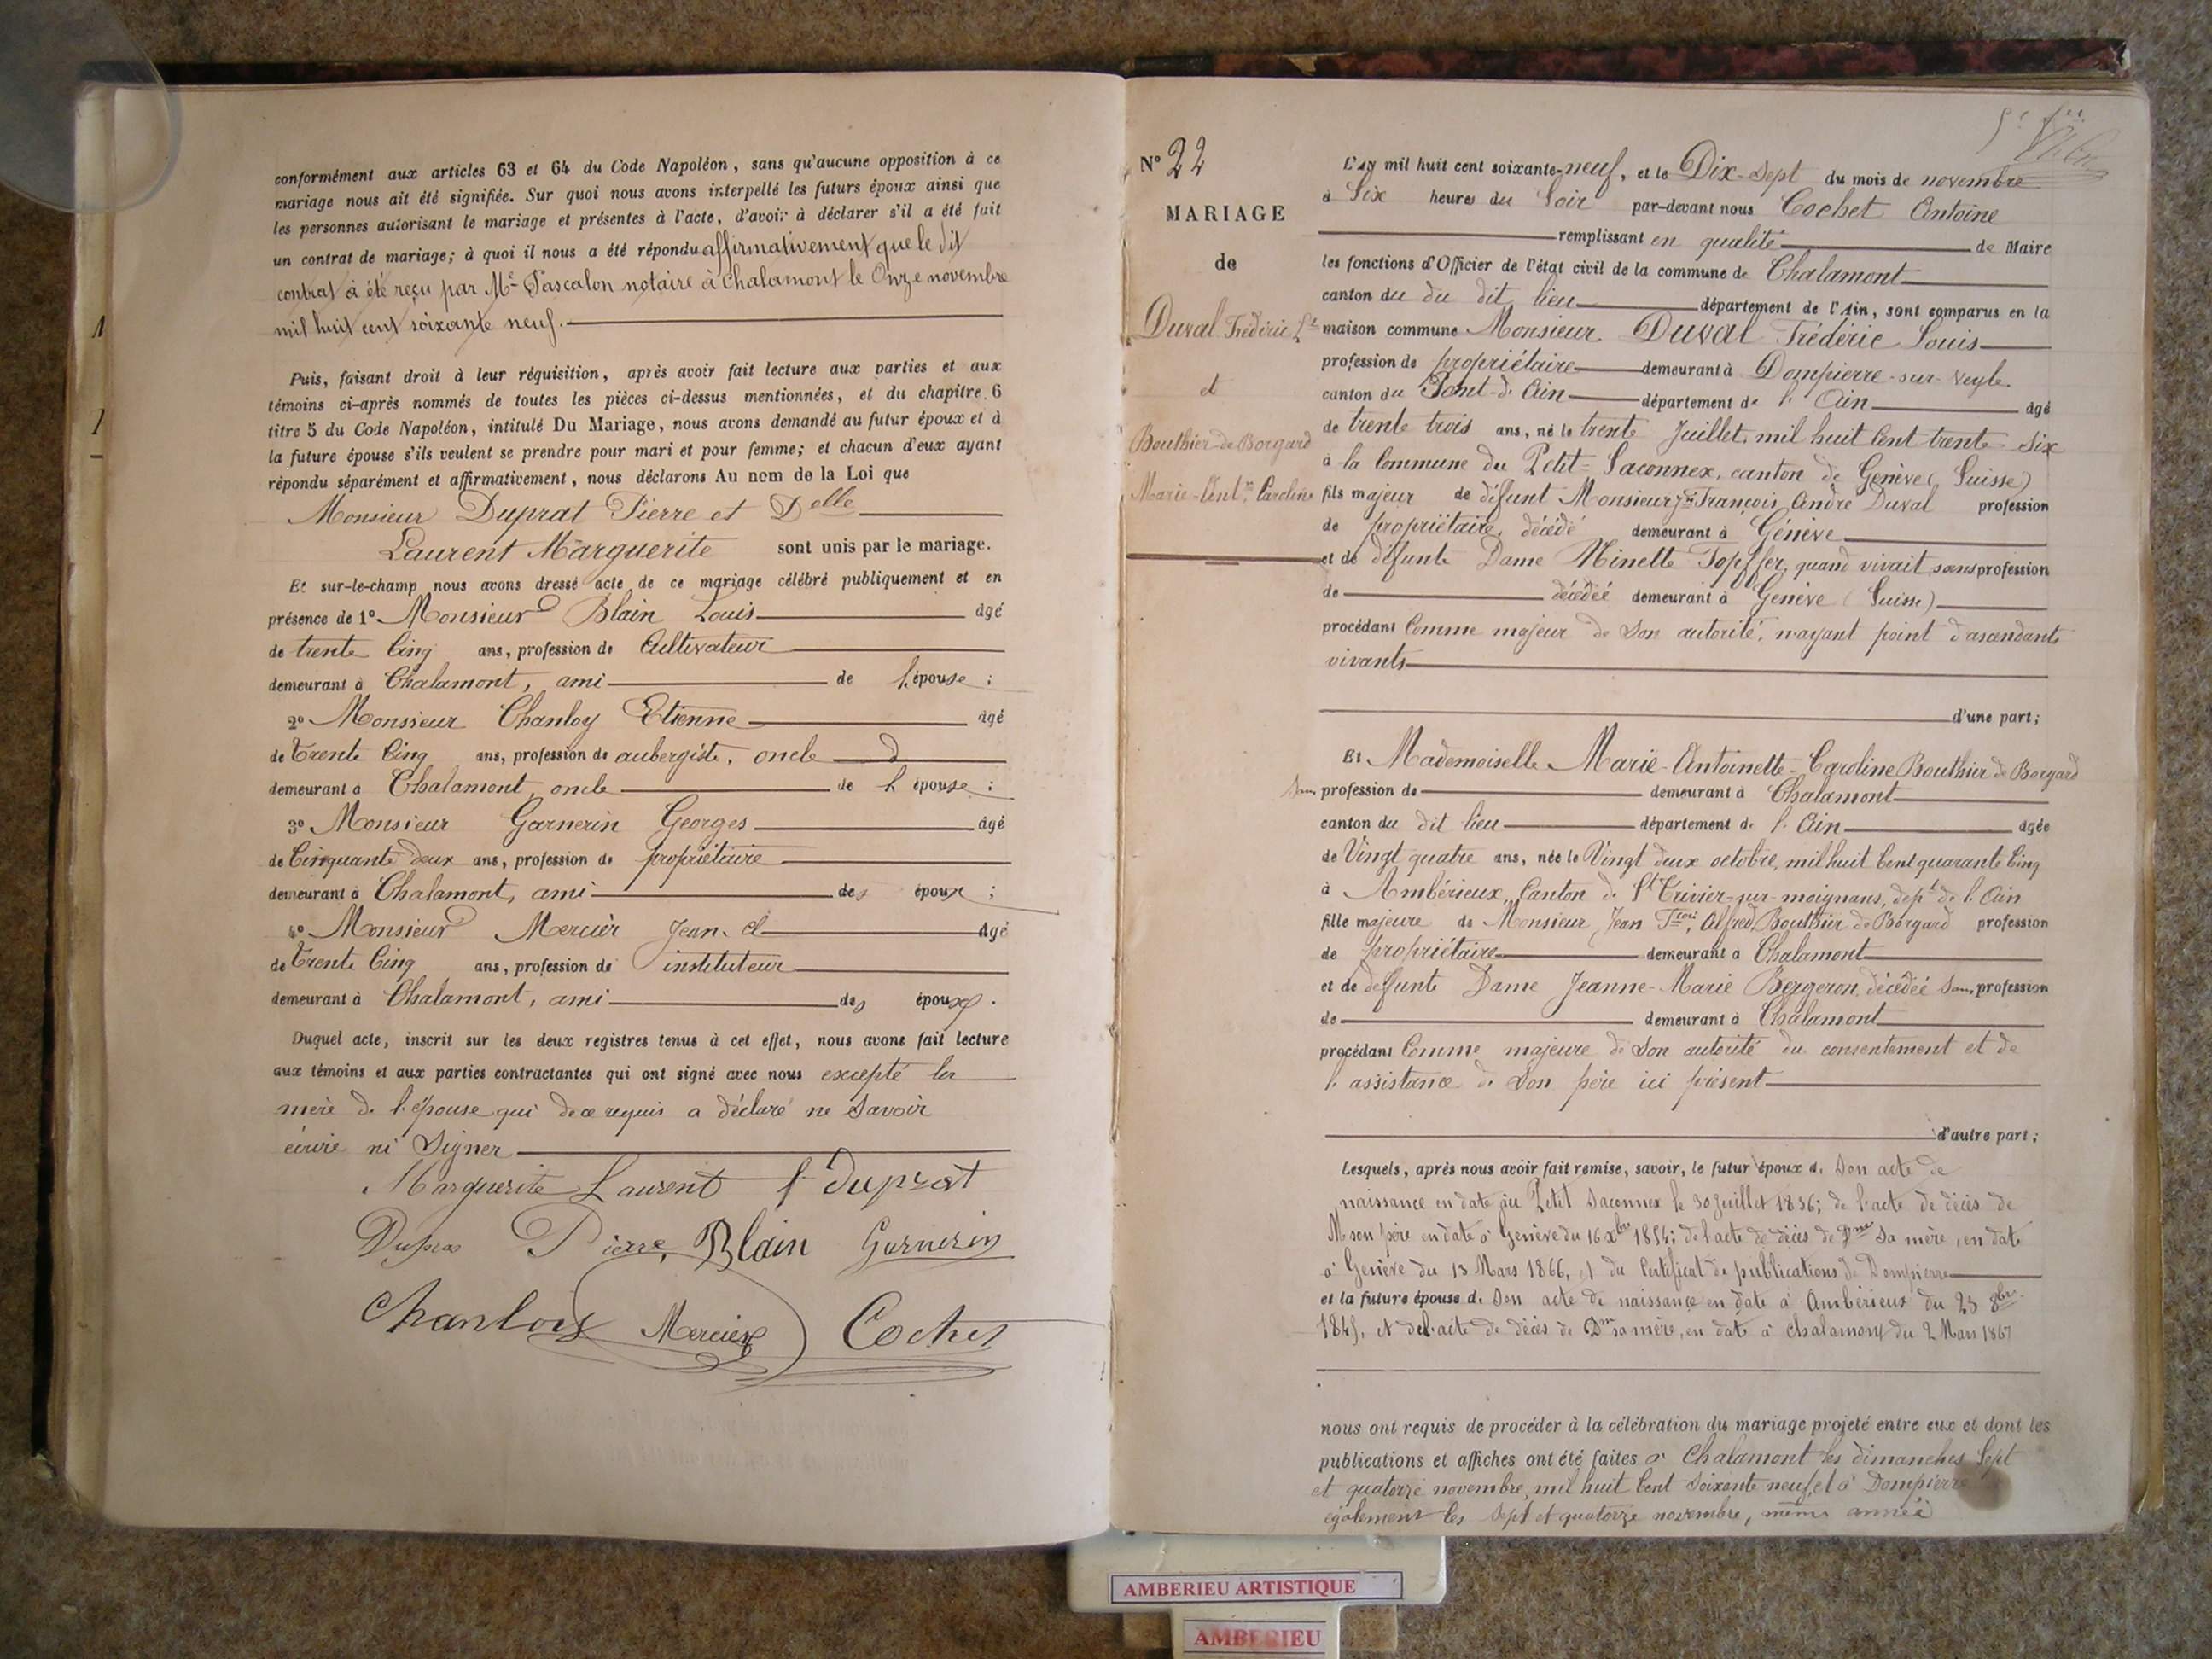 conformément aux articles 63 et 64 du Code Napoléon, sans qu'aucune opposition à ce
mariage nous ait été signifiée. Sur quoi nous avons interpellé les futurs époux ainsi que
les personnes autorisant le mariage et présentes à l'acte, d'avoir à déclarer s'il a été fait
un contrat de mariage; à quoi il nous a été répondu affirmativement que le dit
contrat à été reçu par Me Pascalon notaire à Chalamont le Onze novembre
mil huit cent soixante neuf.
Puis, faisant droit à leur réquisition, après avoir fait lecture aux parties et aux
témoins ci-après nommés de toutes les pièces ci-dessus mentionnées, et du chapitre 6
titre 5 du Code Napoléon, intitulé Du Mariage, nous avons demandé au futur époux et à
la future épouse s'ils veulent se prendre pour mari et pour femme; et chacun d'eux ayant
répondu séparément et affirmativement, nous déclarons Au nom de la Loi que
Monsieur Duprat Pierre et Delle
Laurent Marguerite sont unis par le mariage.
Et sur-le-champ nous avons dressé acte de ce mariage célébré publiquement et en
présence de 1° Monsieur Blain Louis âgé
de trente Cinq ans, profession de Cultivateur
demeurant à Chalamont, ami de l'épouse ;
2° Monsieur Chanloy Etienne âgé
de Trente Cinq ans, profession de aubergiste, oncle
demeurant à Chalamont, oncle de l'épouse ;
3° Monsieur Garnerin Georges âgé
de Cinquante deux ans, profession de propriétaire
demeurant à Chalamont, ami des époux ;
4° Monsieur Mercier Jean. Cl. âgé
de Trente Cinq ans, profession de instituteur
demeurant à Chalamont, ami des époux.
Duquel acte, inscrit sur les deux registres tenus à cet effet, nous avons fait lecture
aux témoins et aux parties contractantes qui ont signé avec nous excepté la
mère de l'épouse qui de ce requis a déclaré ne Savoir
écrire ni Signer
Marguerite Laurent Duprat
Pierre Blain Garnerin
Chanloix Mercier Cochet
N° 22
MARIAGE
de
Duval Frédéric Ls
et
Bouthier de Borgard
Marie-Antte Caroline
L'an mil huit cent soixante-neuf, et le Dix-Sept du mois de novembre
à Six heures du Soir par-devant nous Cochet Antoine
remplissant en qualité de Maire
les fonctions d'Officier de l'état civil de la commune de Chalamont
canton du du dit lieu département de l'Ain, sont comparus en la
maison commune Monsieur Duval Frédéric Louis
profession de propriétaire demeurant à Dompierre-sur-Veyle
canton du Pont-d'Ain département de l'Ain âgé
de trente trois ans, né le trente Juillet mil huit Cent trente Six
à la Commune du Petit-Saconnex, canton de Genève (Suisse)
fils majeur de défunt Monsieur François André Duval profession
de propriétaire, décédé demeurant à Génève
et de défunte Dame Minette Topffer, quand vivait sans profession
de décédée demeurant à Génève (Suisse)
procédant Comme majeur de Son autorité, n'ayant point d'ascendants
vivants
d'une part;
Et Mademoiselle Marie-Antoinette-Caroline Bouthier de Borgard
Sans profession de demeurant à Chalamont
canton du dit lieu département de l'Ain âgée
de Vingt quatre ans, née le Vingt deux octobre, mil huit Cent quarante Cinq
à Ambérieux, Canton de St Trivier-sur-moignans, dépt de l'Ain
fille majeure de Monsieur Jean Alfred Bouthier de Borgard profession
de propriétaire demeurant à Chalamont
et de défunte Dame Jeanne-Marie Bergeron décédée Sans profession
de demeurant à Chalamont
procédant Comme majeure de Son autorité du consentement et de
l'assistance de Son père ici présent
d'autre part;
Lesquels, après nous avoir fait remise, savoir, le futur époux de Son acte de
naissance en date au Petit Saconnex le 30 Juillet 1836; de l'acte de décès de
M. son père en date à Genève du 16 Xbre 1854; de l'acte de décès de Dme Sa mère, en date
à Genève du 13 Mars 1866, et du Certificat de publications de Dompierre
et la future épouse de Son acte de naissance en date à Ambérieux du 23 8bre
1845, et de l'acte de décès de Dme sa mère, en date à Chalamont du 2 Mars 1867
nous ont requis de procéder à la célébration du mariage projeté entre eux et dont les
publications et affiches ont été faites à Chalamont les dimanches Sept
et quatorze novembre, mil huit Cent Soixante neuf, et à Dompierre
également les Sept et quatorze novembre, même année
AMBERIEU ARTISTIQUE
AMBERIEU